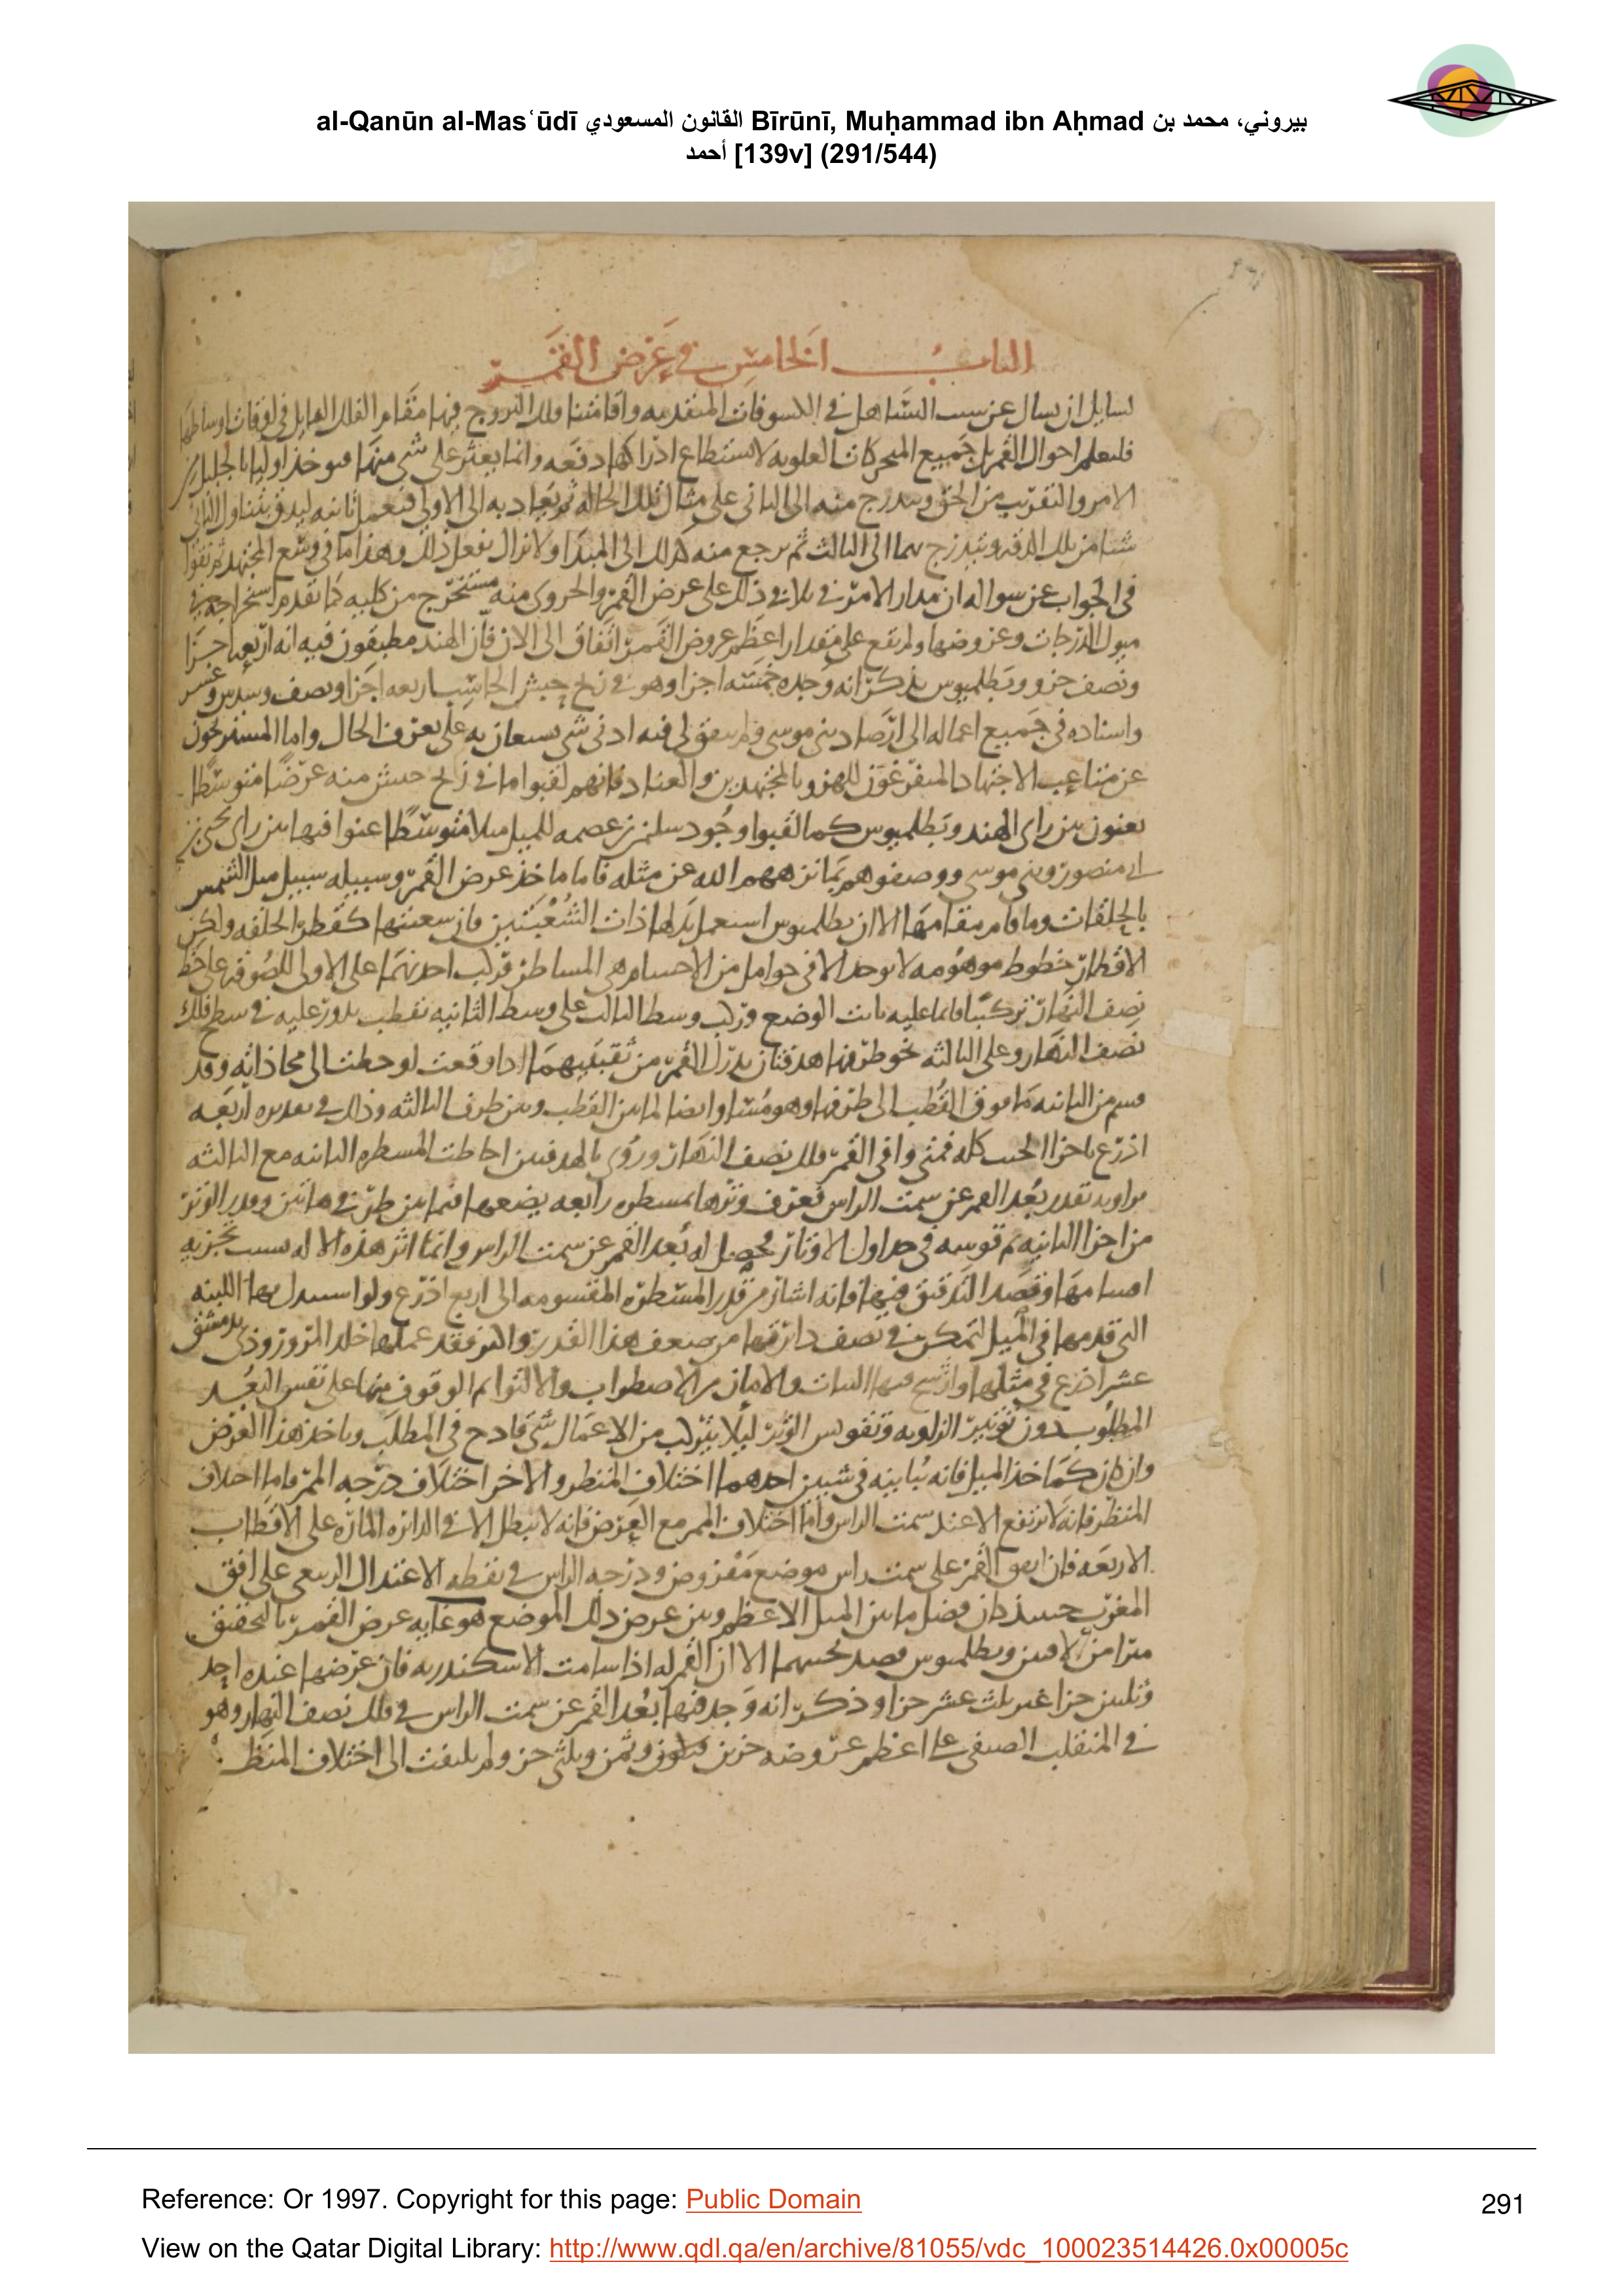 al-Qanūn al-Masʿūdī القانون المسعودي Bīrūnī, Muḥammad ibn Aḥmad بيروني، محمد بن
أحمد [139v] (291/544)
الباب الخامس في عرض القمر
لسايل ان يسال عن سبب التساهل في الكسوفات المتقدمه واقامتنا فلك البروج فيها مقام الفلك المايل في اوقات اوساطها
فليعلم احوال القمر بل جميع المتحركات العلويه لا يستطاع ادراكها دفعه وانما يعثر على شي منها فيوخذ اوليا بالجليل من
الامر والتقريب من الحق ويتدرج منه الى الثاني على مثال تلك الحاله ثم يعاد به الى الاولى فتعمل ثانيه ليدق بتناول الثاني
شيا من تلك الدقه ويتدرج بهما الى الثالث ثم يرجع منه كذلك الى المبدا ولا نزال نفعل ذلك وهذا ما في وسع المجتهد ثم نقول
في الجواب عن سواله ان مدار الامر في تلافي ذلك على عرض القمر والجزوى منه مستخرج من كليه كما تقدم استخراجه في
ميول الدرجات وعروضها ولم يقع على مقدار اعظم عروض القمر اتفاق الى الان فان الهند مطبقون فيه انه اربعه اجزا
ونصف جزو وبطلميوس يذكر انه وجده خمسه اجزا وهو في زيج حبش الحاسب اربعه اجزا ونصف وسدس وعشر
واسناده في جميع اعماله الى ارصاد بني موسى ولم يتفق لي فيه ادنى شي يستعان به على تعرف الحال واما المستريحون
عن متاعب الاجتهاد المتفرغون للهزو بالمجتهدين والعناد فانهم لقبوا ما في زيج حبش منه عرضا متوسطا
يعنون بين راى الهند وبطلميوس كما لقبوا وجود سلمن بن عصمه للميل ميلا متوسطا عنوا فيها بين راى يحيى بن
ابي منصور وبني موسى ووصفوهم بما نزههم الله عن مثله فاما ماخذ عرض القمر وسبيله سبيل ميل الشمس
بالحلقات وما قام مقامها الا ان بطلميوس استعمل بدلها ذات الشعبتين فان سعتها كقطر الحلقه ولكن
الاقطار خطوط موهومه لا توجد الا في حوامل من الاجسام هي المساطر فركب احدتهما على الاولى الملصوقه على خط
نصف النهار تركيبا قايما عليه ثابت الوضع وركب وسط الثالث على وسط الثانيه بقطب يدور عليه في سطح فلك
نصف النهار وعلى الثالثه نحو طرفها هدفتان يدرك القمر من ثقبتيهما اذا وقعت لوحظت الى محاذاته وقد
قسم من الثانيه ما فوق القطب الى طرفها وهو مساو ايضا لما بين القطب وبين طرف الثالثه وذلك في تقديره اربعه
اذرع باجزا الجيب كله فمتى وافى القمر فلك نصف النهار وروى بالهدفتين احاطت المسطره الثانيه مع الثالثه
بزاويه تقدر بعد القمر عن سمت الراس فعرف وترها بمسطره رابعه يضعها فيما بين طرفي هاتين وقدر الوتر
من اجزا الثانيه ثم قوسه في جداول الاوتار فحصل له بعد القمر عن سمت الراس وانما اثر هذه الاله لسبب تجزيه
اقسامها وقصد التدقيق فيها فانه اشار من قدر المسطره المقسومه الى اربع اذرع ولو استبدل بها اللبنه
التي قدمها في الميل لتمكن في نصف دايرتها من ضعف هذا القدر واكثر فقد عملها خلد المروروذي بدمشق
عشر اذرع في مثلها وارسخ فيها الثبات والامان من الاضطراب والالتوا ثم الوقوف منها على نفس البعد
المطلوب دون توتير الزاويه وتقويس الوتر ليلا يتركب من الاعمال شي قادح في المطلب وماخذ هذا العرض
وان كان كماخذ الميل فانه يباينه في شيين احدهما اختلاف المنظر والاخر اختلاف درجه الممر فاما اختلاف
المنظر فانه لا يرتفع الا عند سمت الراس واما اختلاف الممر مع العرض فانه لا يبطل الا في الدايره الماره على الاقطاب
الاربعه فان اتفق القمر على سمت راس موضع مفروض ودرجه الراس في نقطه الاعتدال الربيعي على افق
المغرب حينيذ كان فضل ما بين الميل الاعظم وبين عرض ذلك الموضع هو غايه عرض القمر بالتحقيق
مبرا من الافتين وبطلميوس قصد تحسيهما الا ان القمر له اذا سامت الاسكندريه فان عرضها عنده احد
وثلثين جزا غير ثلث عشر جزا وذكر انه وجد فيها بعد القمر عن سمت الراس في فلك نصف النهار وهو
في المنقلب الصيفي على اعظم عروضه جزين وثمن وثلثي جز ولم يلتفت الى اختلاف المنظر
Reference: Or 1997. Copyright for this page: Public Domain
291
View on the Qatar Digital Library: http://www.qdl.qa/en/archive/81055/vdc_100023514426.0x00005c